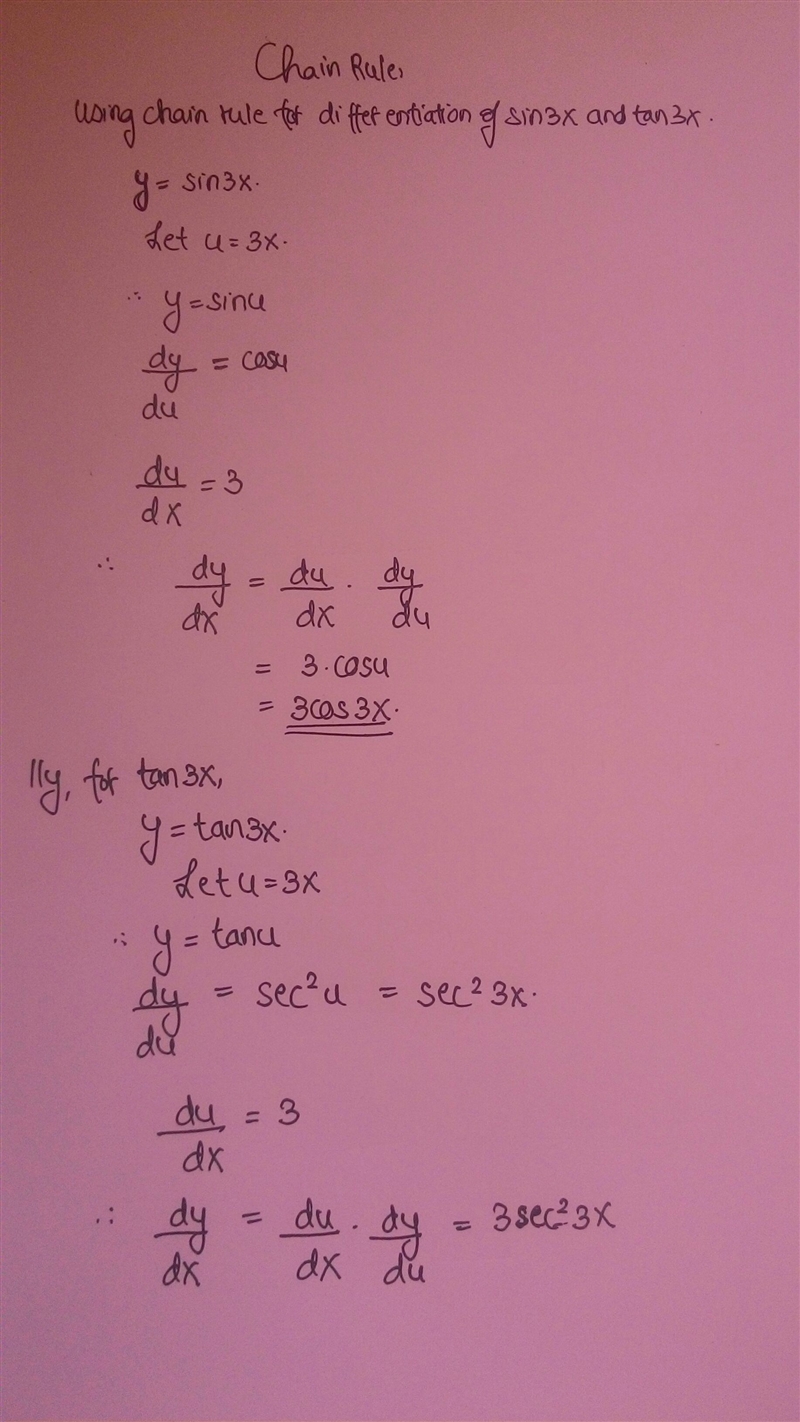 Chain Rule,
Using chain rule for differentiation of sin3x and tan3x.
y = sin3x.
Let u = 3x.
∴ y = sinu
dy/du = cosu
du/dx = 3
∴ dy/dx = du/dx . dy/du
= 3.cosu
= 3cos3x.
||ly, for tan3x,
y = tan3x.
Let u = 3x
∴ y = tanu
dy/du = sec²u = sec²3x.
du/dx = 3
∴ dy/dx = du/dx . dy/du = 3sec²3x